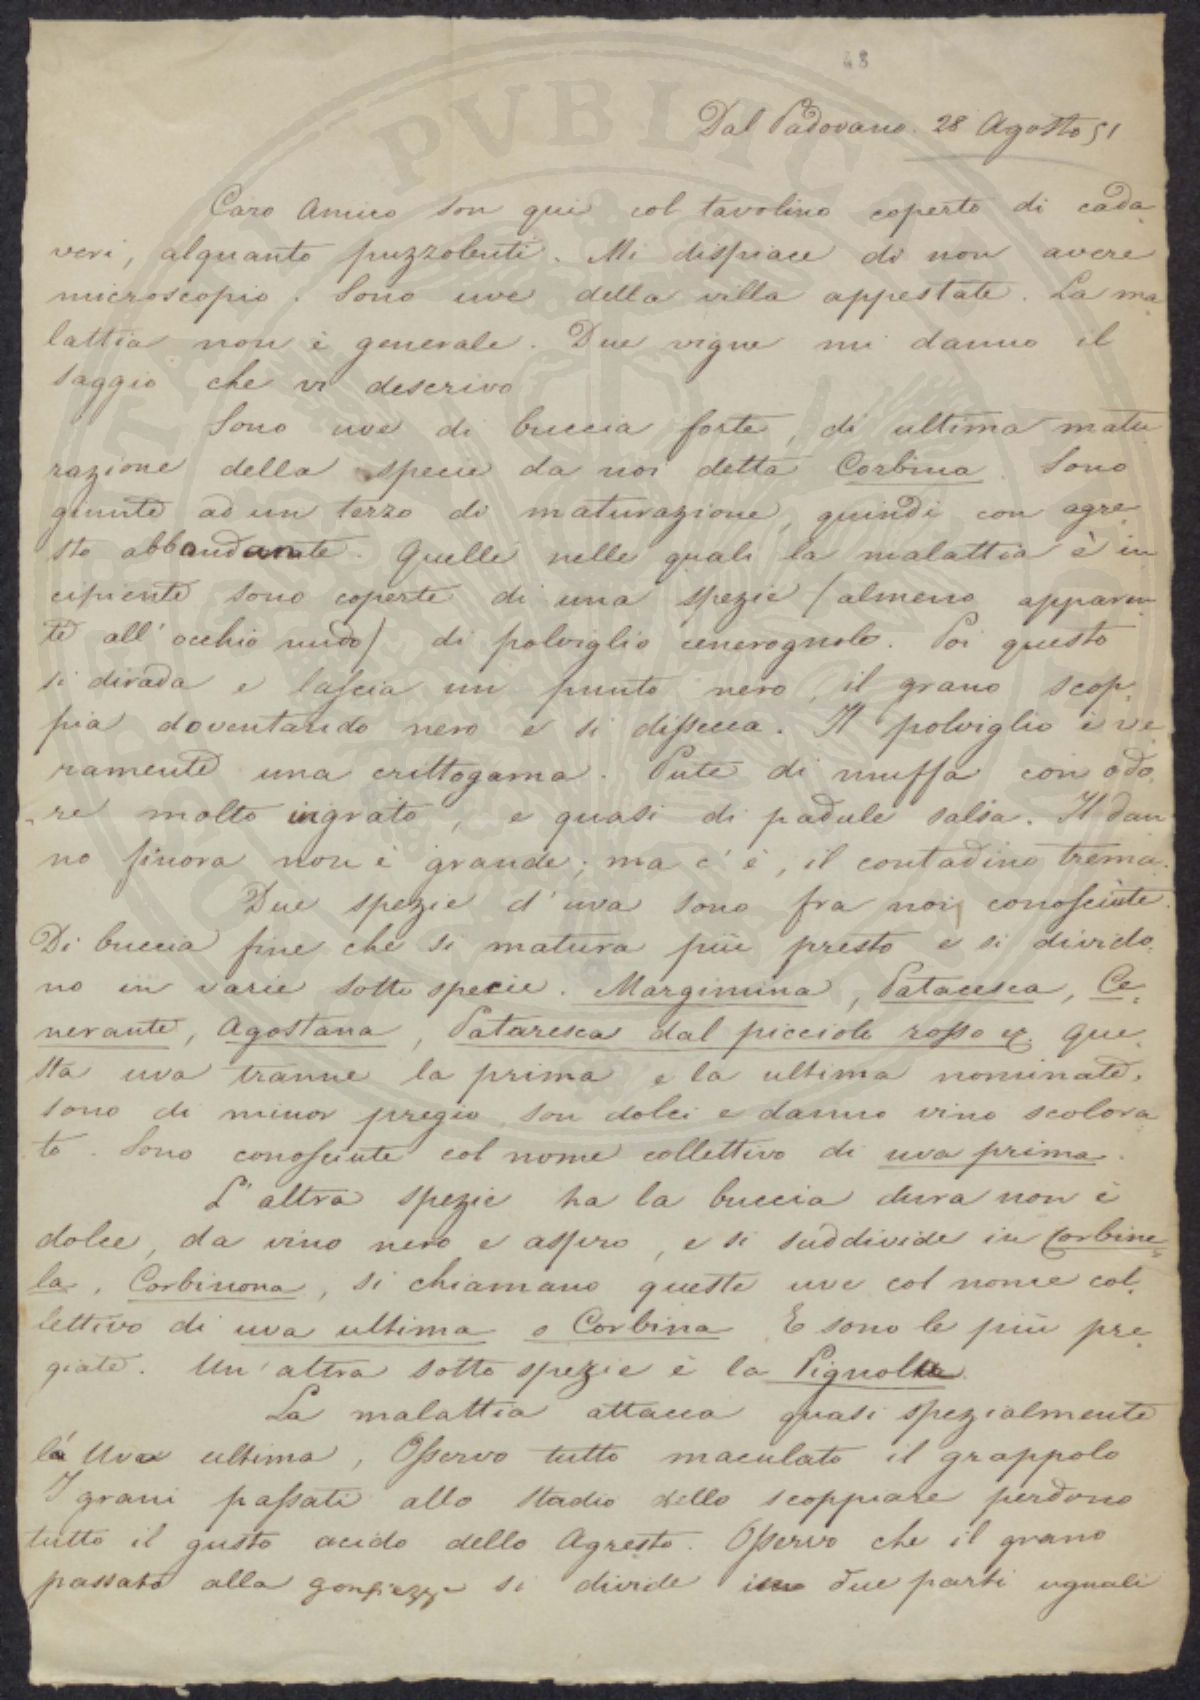 48
Dal Padovano. 28 Agosto 51
Caro Amico son qui col tavolino coperto di cada
veri, alquanto puzzolenti. Mi dispiace di non avere
microscopio. Sono uve della villa appestate. La ma
lattia non è generale. Due vigne mi danno il
saggio che vi descrivo
Sono uve di buccia forte, di ultima matu
razione della specie da noi detta Corbina. Sono
giunte ad un terzo di maturazione, quindi con agre
sto abbondante. Quelle nelle quali la malattia è in
cipiente sono coperte di una spezie (almeno apparen
te all'occhio nudo) di polviglio cenerognolo. Poi questo
si dirada e lascia un punto nero, il grano scop
pia doventando nero e si dissecca. Il polviglio è ve
ramente una crittogama. Pute di muffa con odo
re molto ingrato, e quasi di padule salsa. Il dan
no finora non è grande; ma c'è, il contadino trema.
Due spezie d'uva sono fra noi conosciute.
Di buccia fine che si matura più presto e si divido
no in varie sotto specie. Marginina, Patacesca, Ce
nerante, Agostana, Pataresca dal picciolo rosso &. que
sta uva tranne la prima e la ultima nominate,
sono di minor pregio, son dolci e danno vino scolora
to. Sono conosciute col nome collettivo di uva prima.
L'altra spezie ha la buccia dura non è
dolce, da vino nero e aspro, e si suddivide in Corbine
la, Corbinona, si chiamano queste uve col nome col
lettivo di uva ultima o Corbina E sono le più pre
giate. Un'altra sotto spezie è la Pignola.
La malattia attacca quasi spezialmente
la Uva ultima, Osservo tutto maculato il grappolo
I grani passati allo stadio dello scoppiare perdono
tutto il gusto acido dello Agresto. Osservo che il grano
passato alla gonfiezza si divide in due parti uguali
PVBLICA